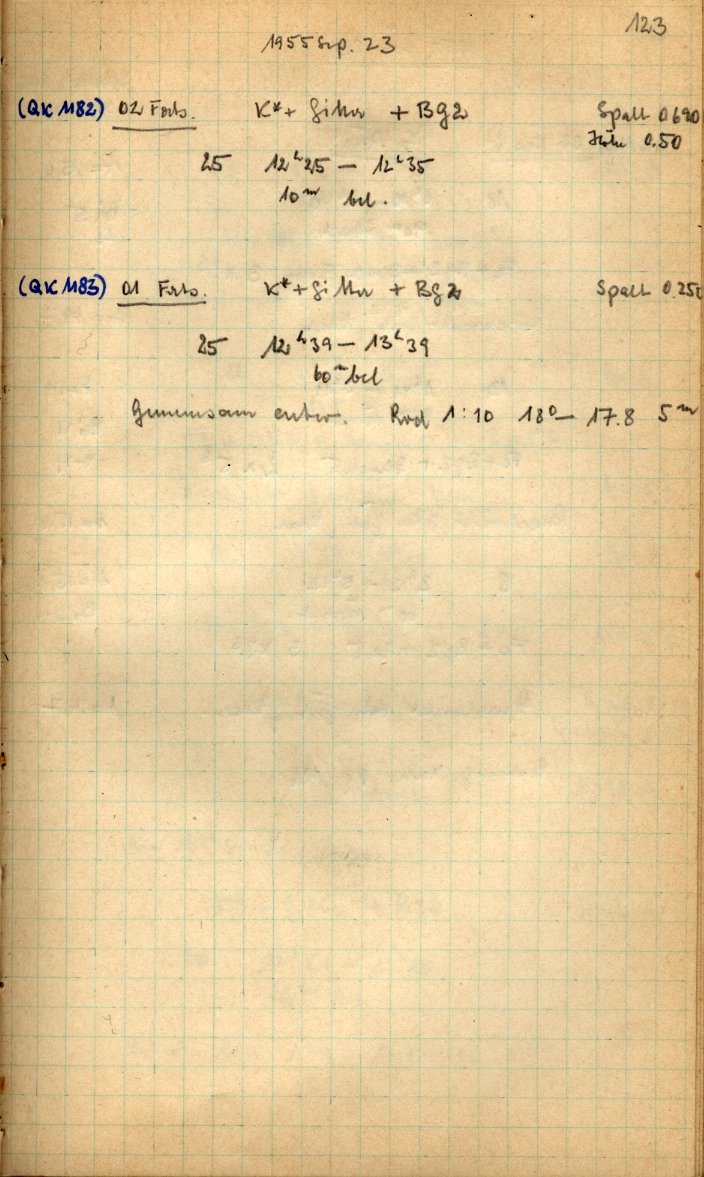 123
1955 Sep. 23
(QK 1182) 02 Forts. K* + Gitter + Bg2 Spalt 0.690
Höhe 0.50
25 12ʰ25 — 12ʰ35
10ᵐ bel.
(QK 1183) 01 Forts. K* + Gitter + Bg2 Spalt 0.25
25 12ʰ39 — 13ʰ39
60ᵐ bel
Gemeinsam entw. Rod 1:10 18⁰ — 17.8 5ᵐ